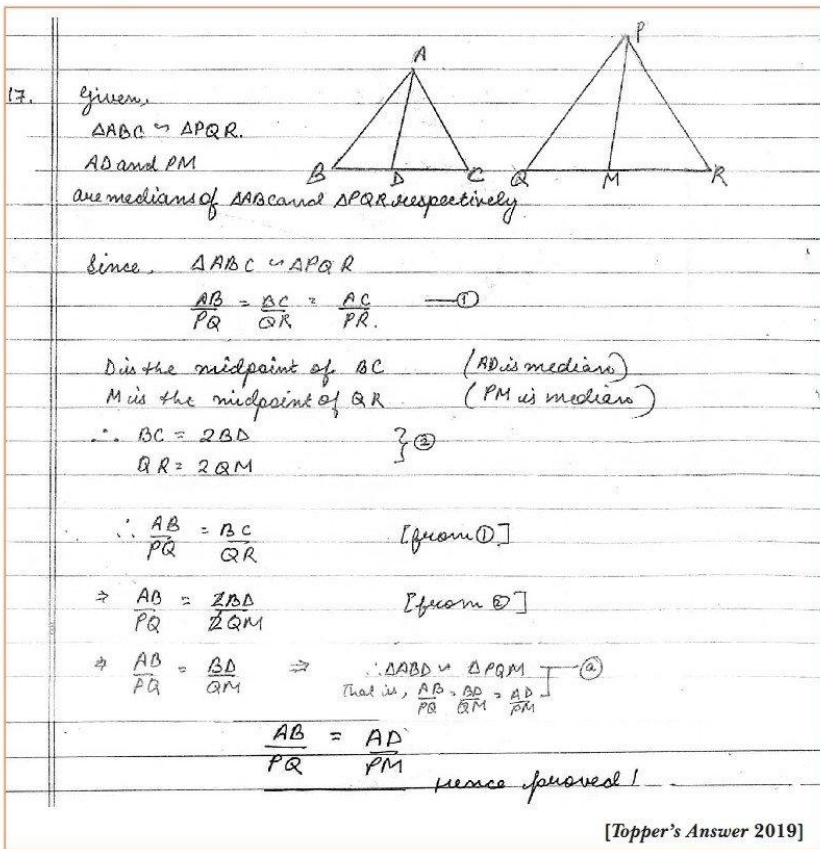 A
P
17. Given,
ΔABC ~ ΔPQR.
AD and PM
B D C Q M R
are medians of ΔABC and ΔPQR respectively
Since, ΔABC ~ ΔPQR
AB/PQ = BC/QR = AC/PR. —①
D is the midpoint of BC (AD is median)
M is the midpoint of QR (PM is median)
∴ BC = 2BD
QR = 2QM } ②
∴ AB/PQ = BC/QR [from ①]
⇒ AB/PQ = 2BD/2QM [from ②]
⇒ AB/PQ = BD/QM ⇒ ∴ ΔABD ~ ΔPQM —ⓐ
That is, AB/PQ = BD/QM = AD/PM
AB/PQ = AD/PM
Hence proved!
[Topper's Answer 2019]